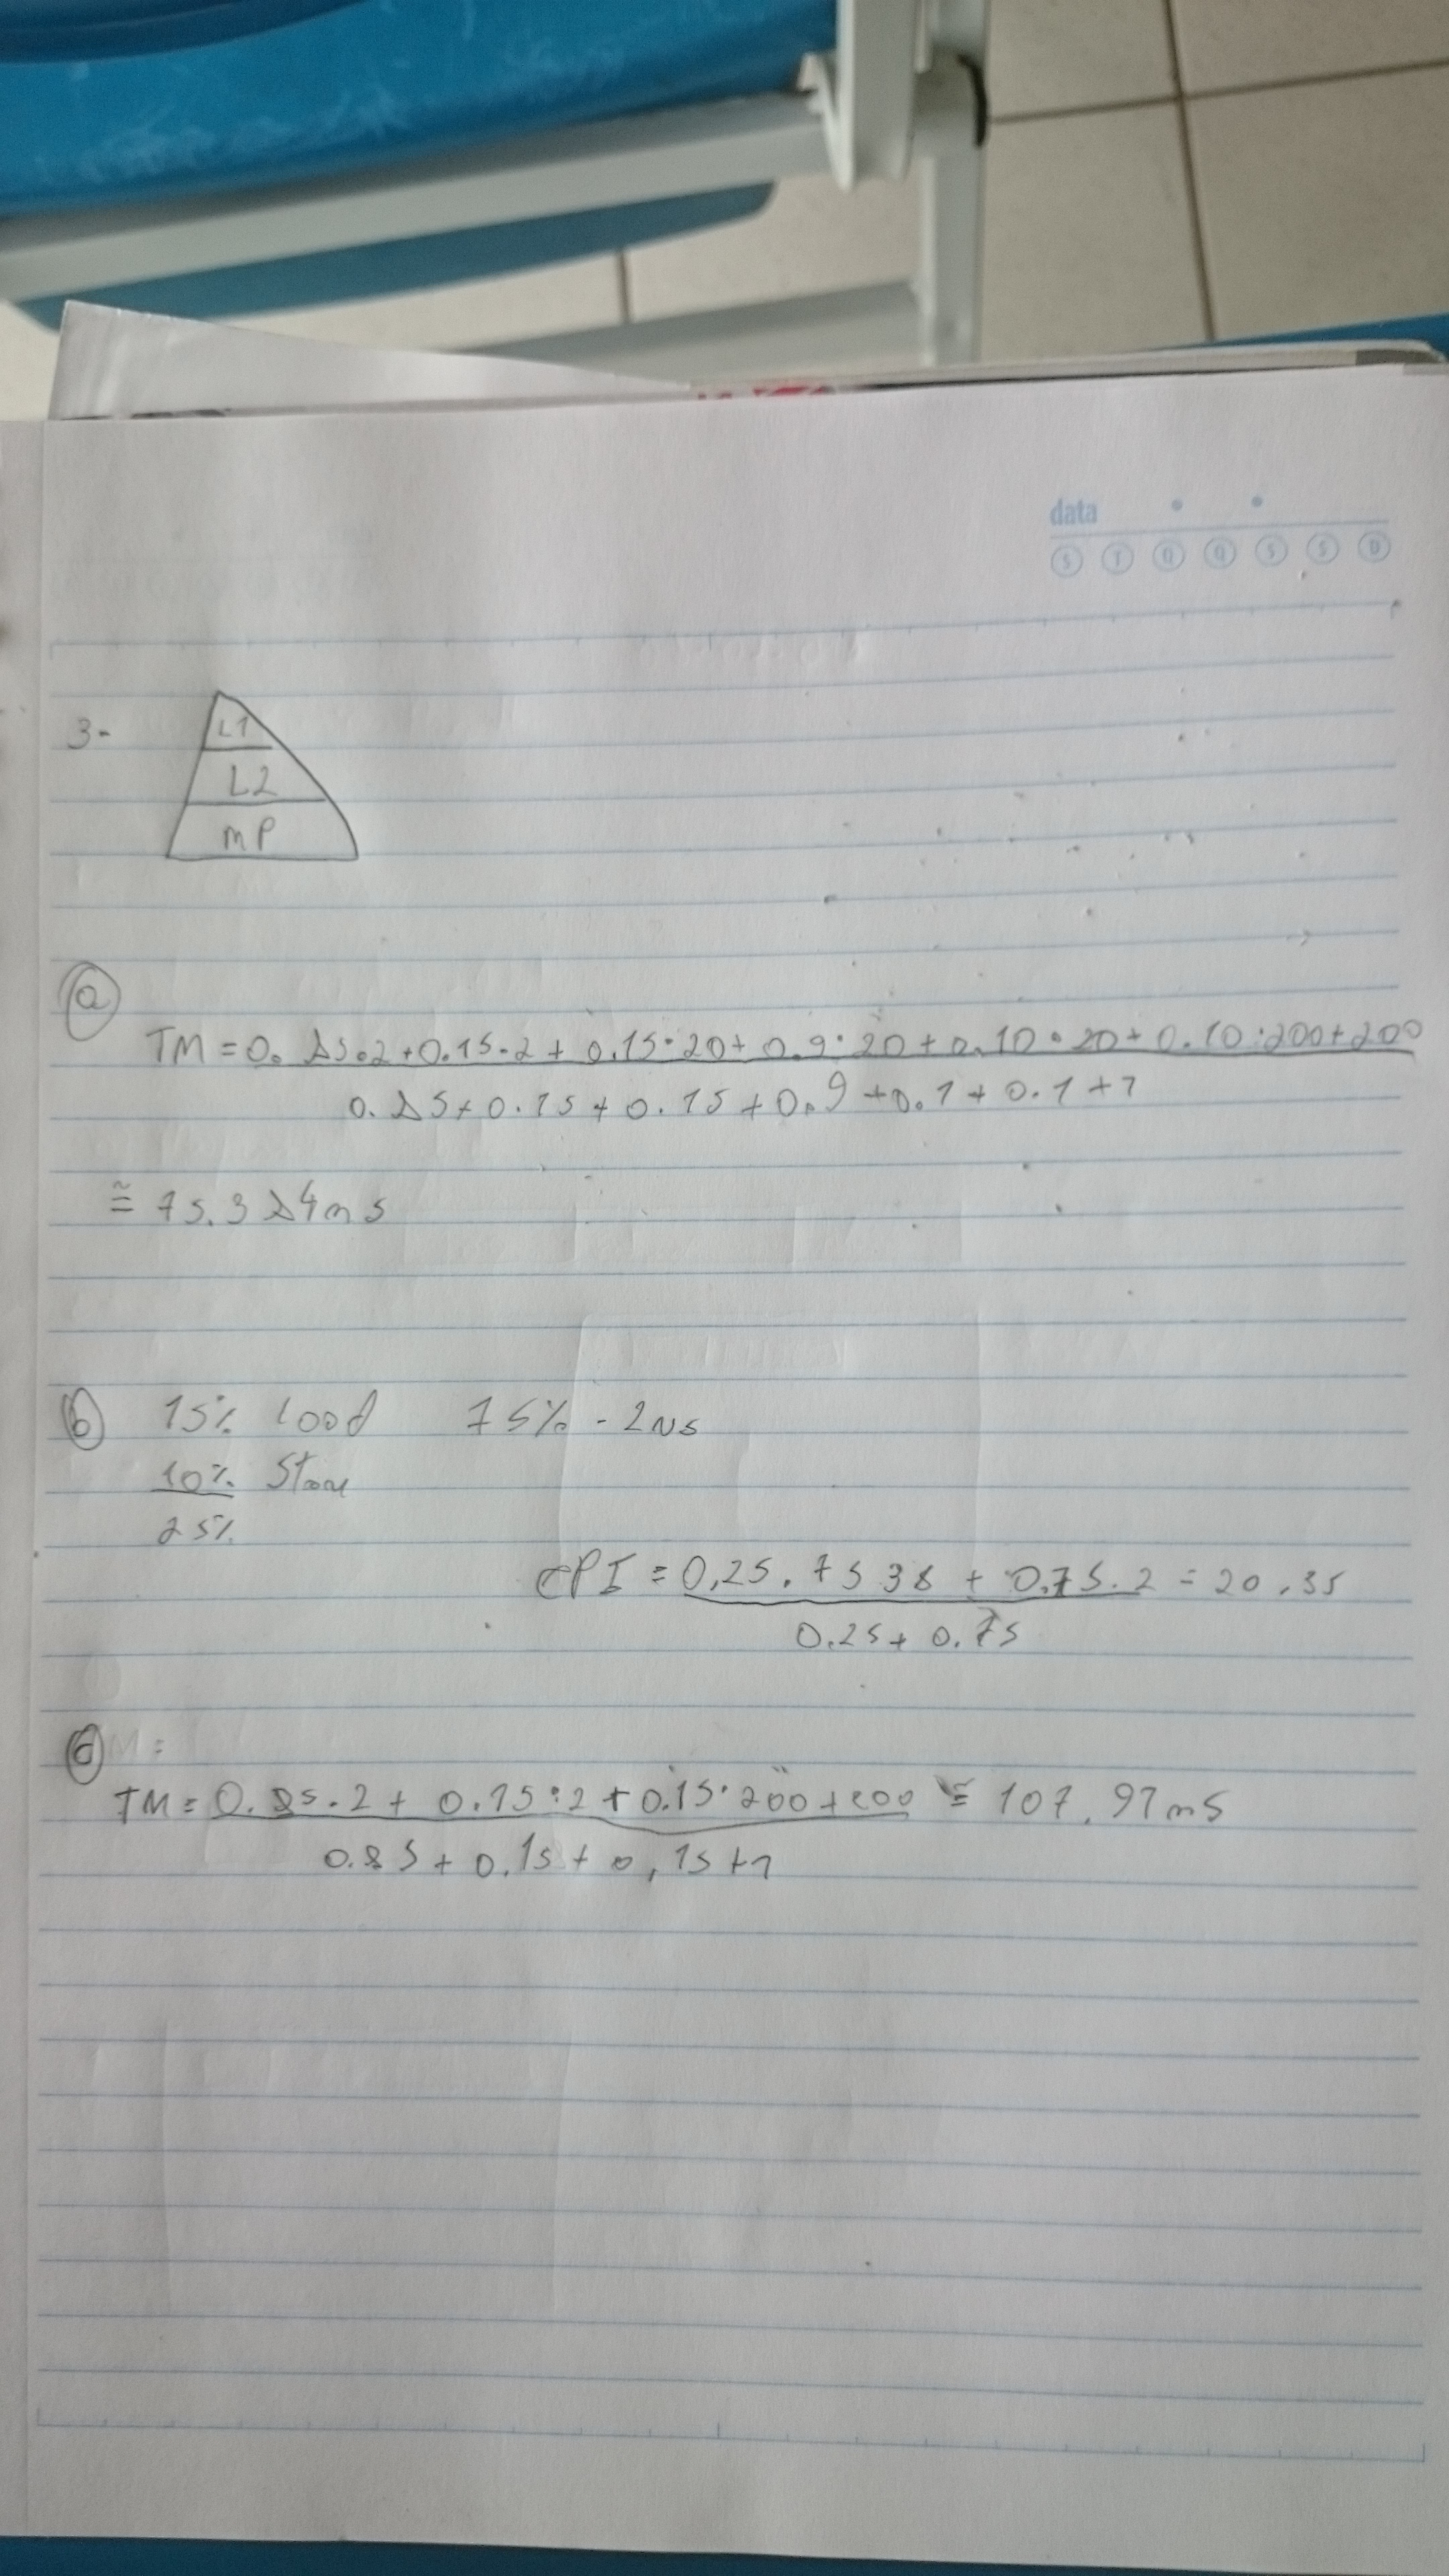 data
S T Q Q S S D
3-
L1
L2
MP
a
TM = 0.85.2 + 0.15.2 + 0.15.20 + 0.9.20 + 0.10.20 + 0.10.200 + 200
0.85 + 0.15 + 0.15 + 0.9 + 0.1 + 0.1 + 1
≅ 75.384ns
b 15% Load 75% - 2NS
10% Store
25%
CPI = 0,25.7538 + 0.75.2 = 20.35
0.25 + 0.75
c
TM = 0.85.2 + 0.15.2 + 0.15.200 + 200 ≅ 107.91ns
0.85 + 0.15 + 0,15 + 1